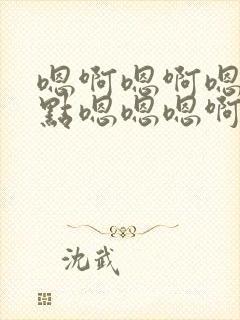 嗯啊嗯啊嗯
點嗯嗯嗯啊
沈武